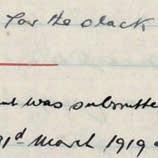 for the clack
was submitte
March 1919